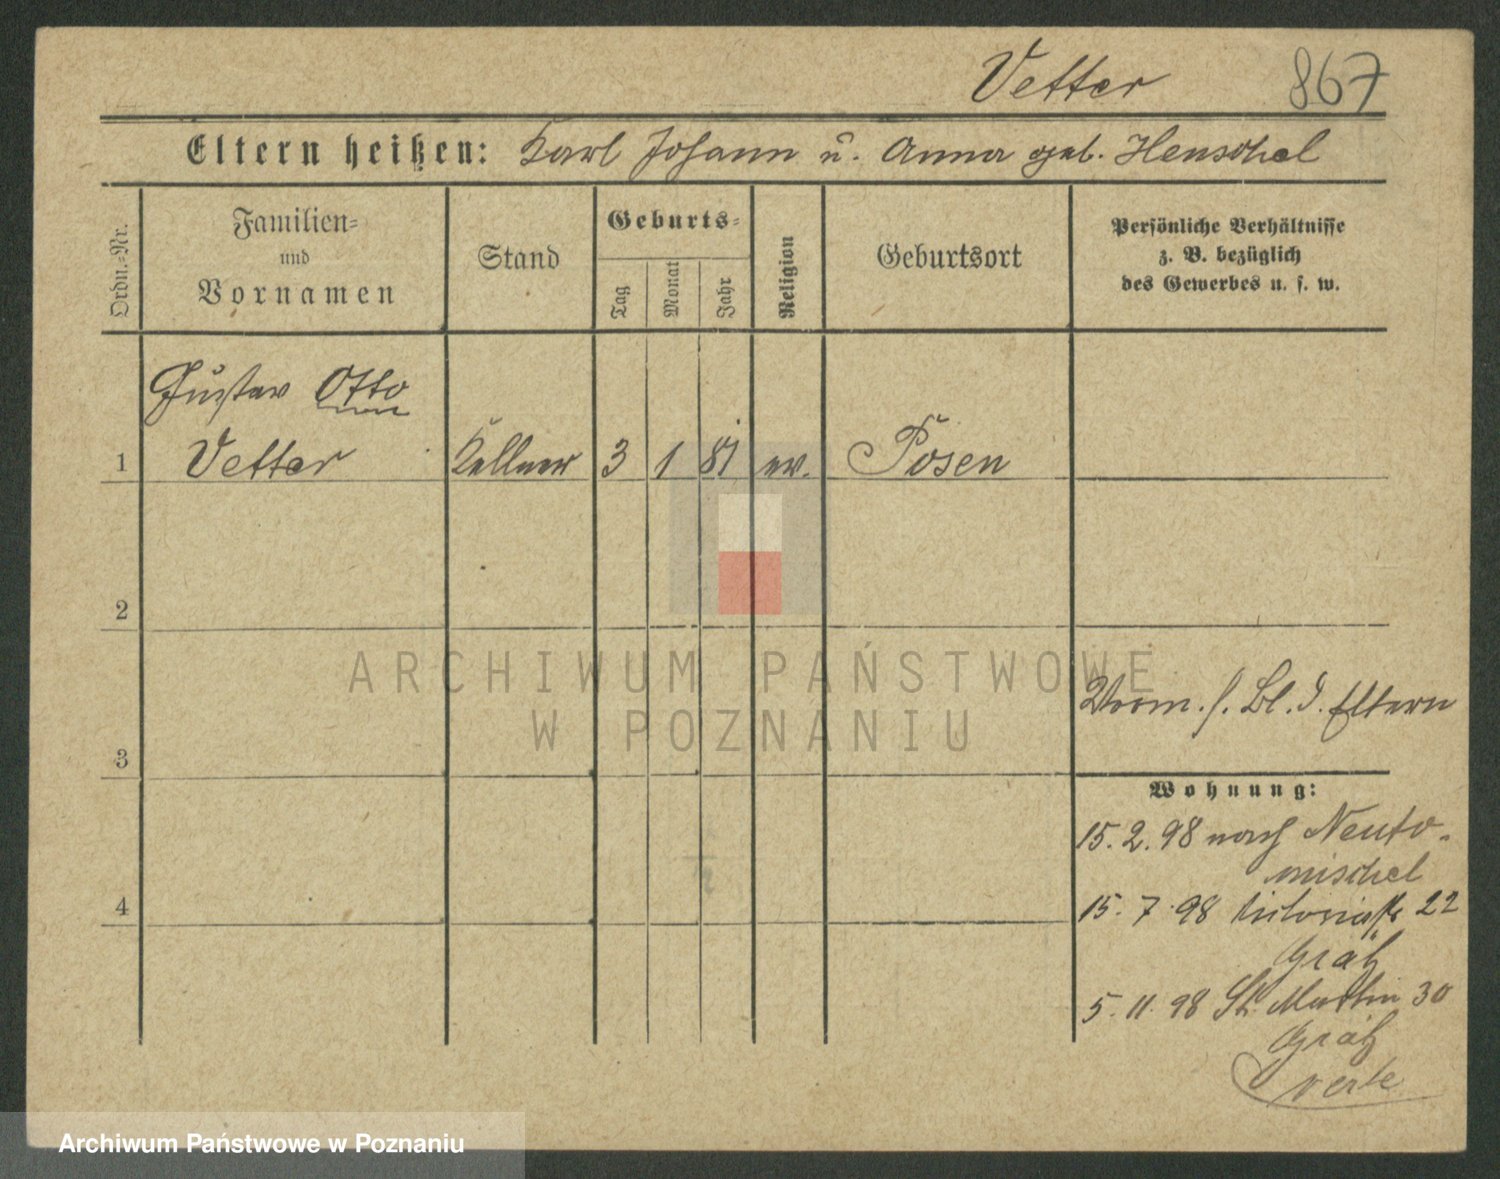 Vetter 867
Eltern heißen: Karl Johann u. Anna geb. Henschel
Ordn.-Nr.
Familien-
und
Vornamen
Stand
Geburts-
Tag
Monat
Jahr
Religion
Geburtsort
Persönliche Verhältnisse
z. B. bezüglich
des Gewerbes u. s. w.
Gustav Otto
1 Vetter Kellner 3 1 81 ev. Posen
2
ARCHIWUM PAŃSTWOWE
W POZNANIU
Vorm. s. Bl. d. Eltern
3
Wohnung:
15. 2. 98 nach Neuto-
mischel
4
15. 7. 98 Victoriastr 22
Grätz
5. 11. 98 St. Martin 30
Grätz
verte
Archiwum Państwowe w Poznaniu